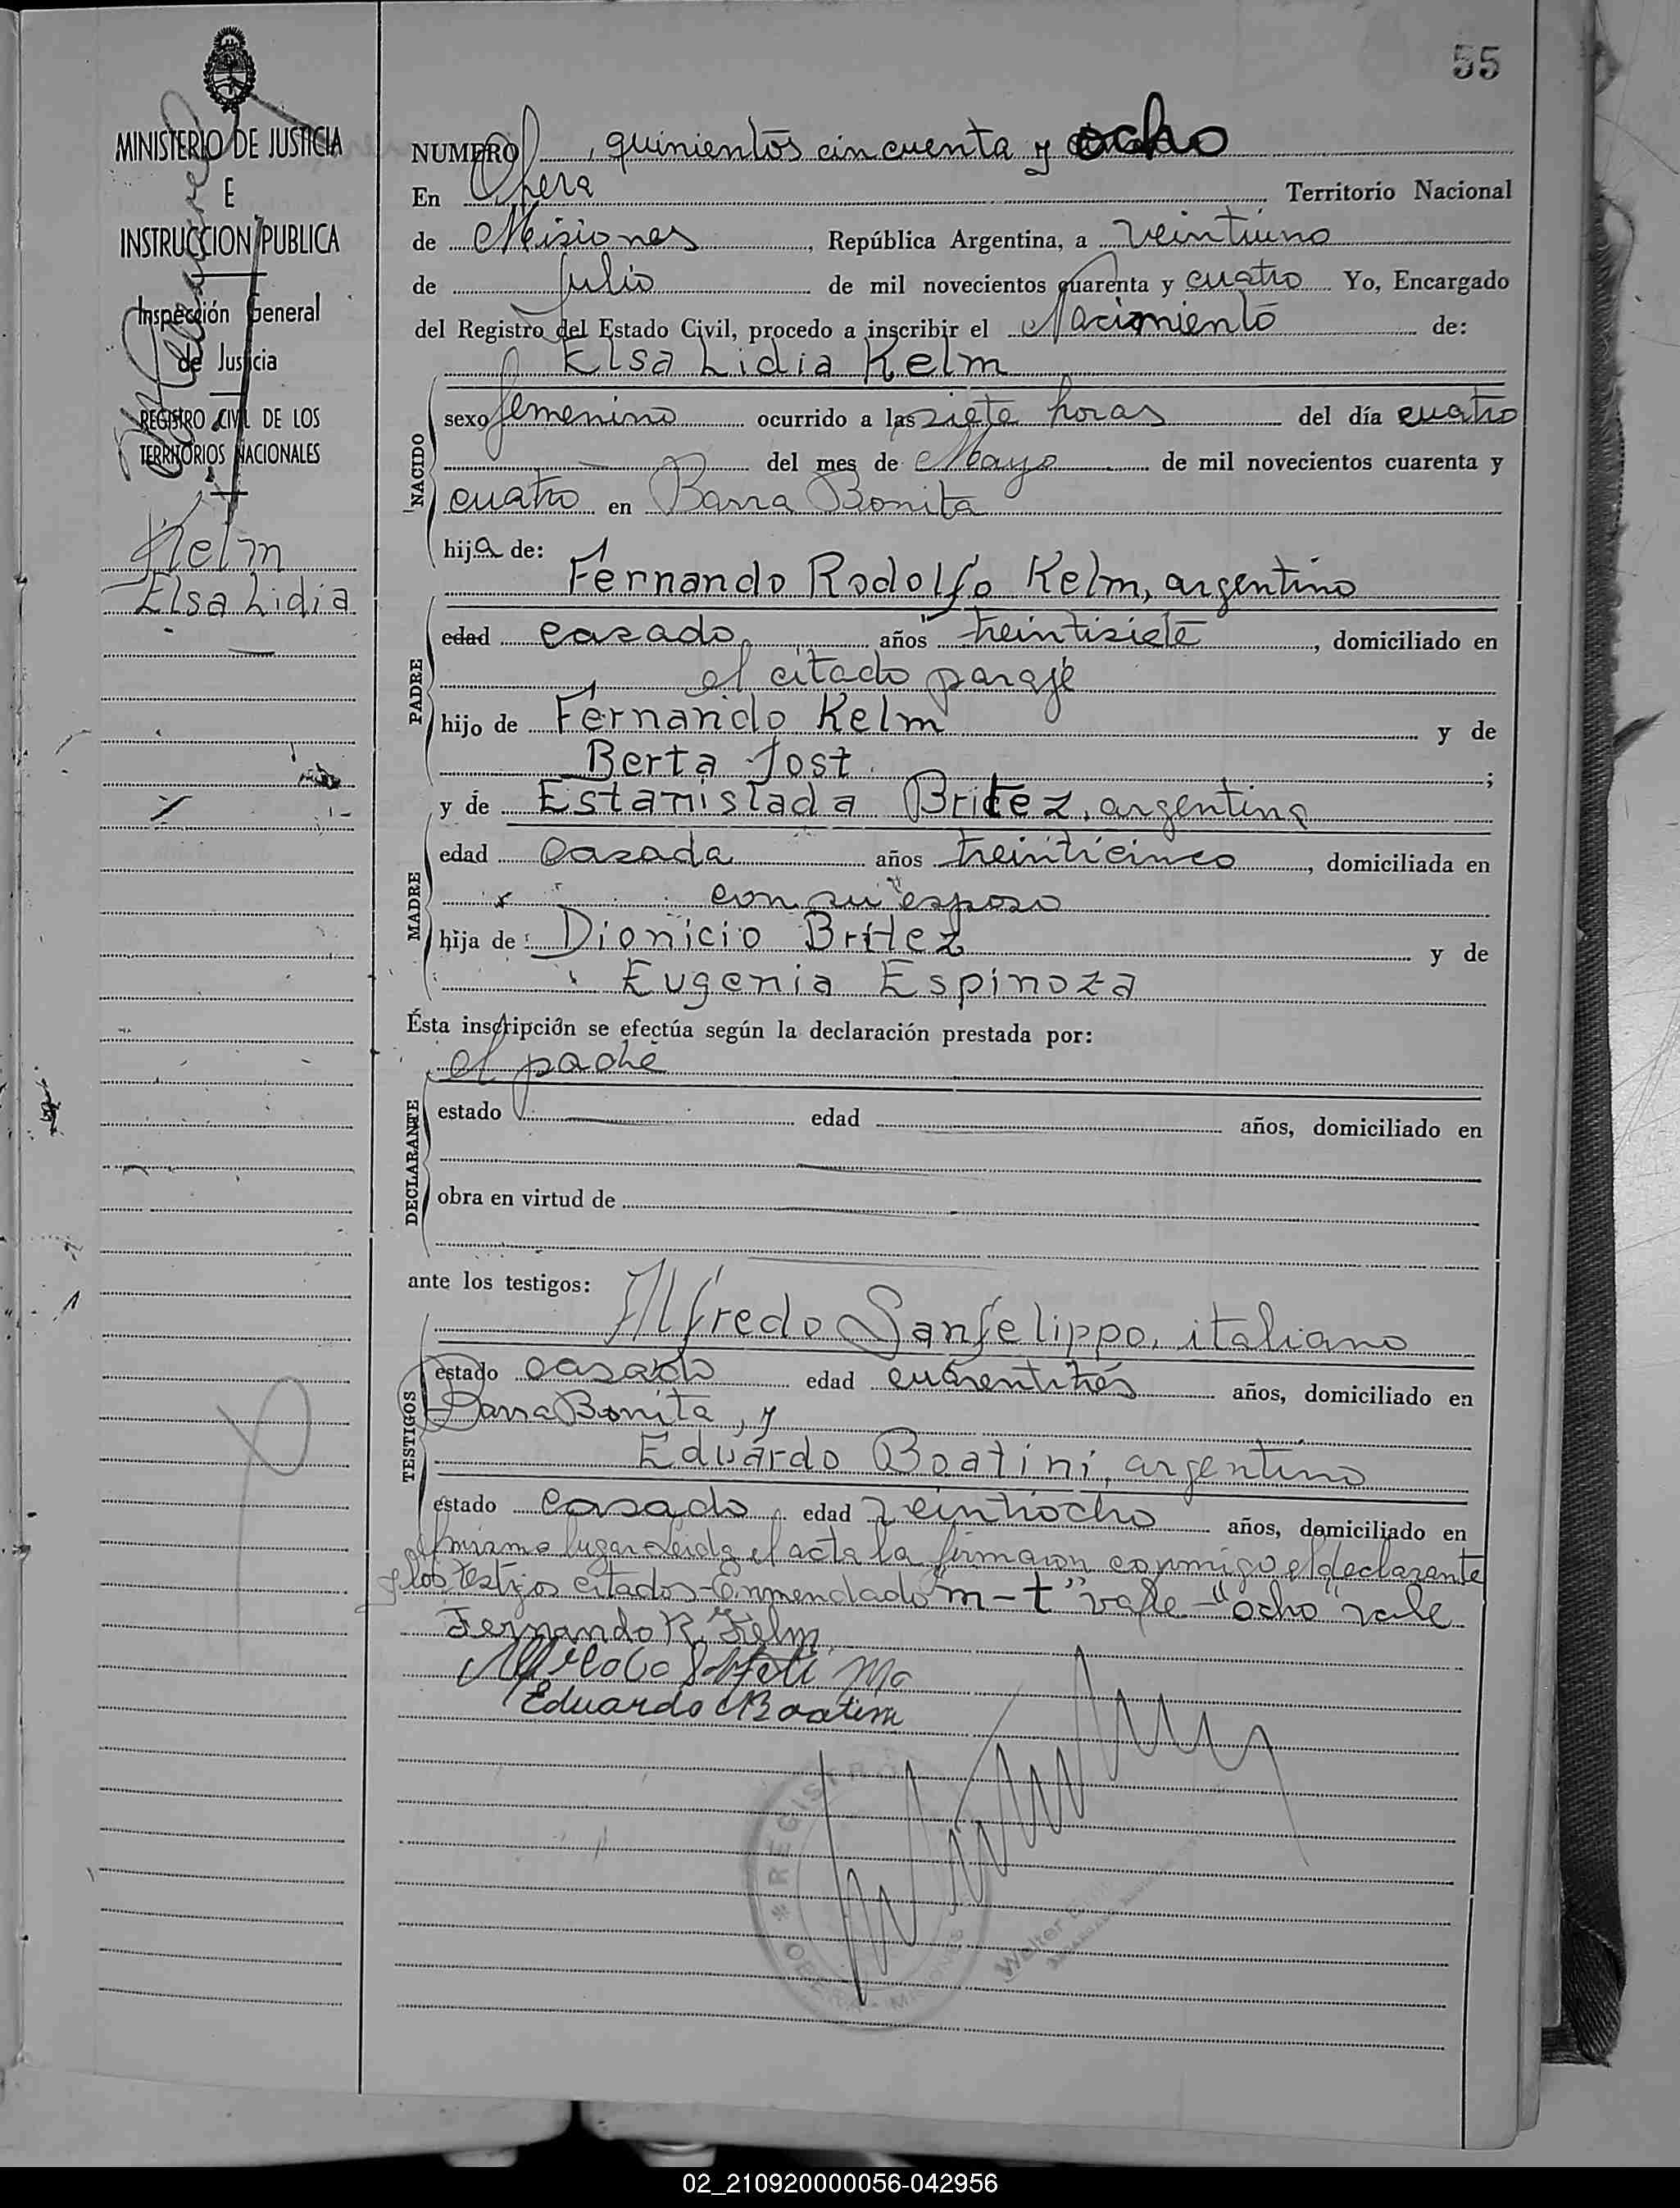 55
MINISTERIO DE JUSTICIA
E
INSTRUCCION PUBLICA
Inspección General
de Justicia
REGISTRO CIVIL DE LOS
TERRITORIOS NACIONALES
Kelm
Elsa Lidia
NUMERO quinientos cincuenta y ocho
En Obera Territorio Nacional
de Misiones, República Argentina, a veintiuno
de Julio de mil novecientos cuarenta y cuatro Yo, Encargado
del Registro del Estado Civil, procedo a inscribir el Nacimiento de:
Elsa Lidia Kelm
NACIDO
sexo femenino ocurrido a las siete horas del día cuatro
del mes de Mayo de mil novecientos cuarenta y
cuatro en Barra Bonita
hija de:
Fernando Rodolfo Kelm, argentino
PADRE
edad casado años treintisiete, domiciliado en
el citado paraje
hijo de Fernando Kelm y de
Berta Jost ;
y de Estanislada Britez, argentina
MADRE
edad casada años treinticinco, domiciliada en
con su esposo
hija de Dionicio Britez y de
Eugenia Espinoza
Ésta inscripción se efectúa según la declaración prestada por:
el padre
DECLARANTE
estado edad años, domiciliado en
obra en virtud de
ante los testigos:
Alfredo Sanfelippo, italiano
TESTIGOS
estado casado edad cuarentitrés años, domiciliado en
Barra Bonita, y
Eduardo Boatini, argentino
estado casado edad veintiocho años, domiciliado en
el mismo lugar. Leida el acta la firmaron conmigo el declarante
y los testigos citados - Enmendado "m-t" vale - "ocho" vale
Fernando R. Kelm
Eduardo Boatini
REGISTRO
OBERA - MISIONES
Walter
02_210920000056-042956